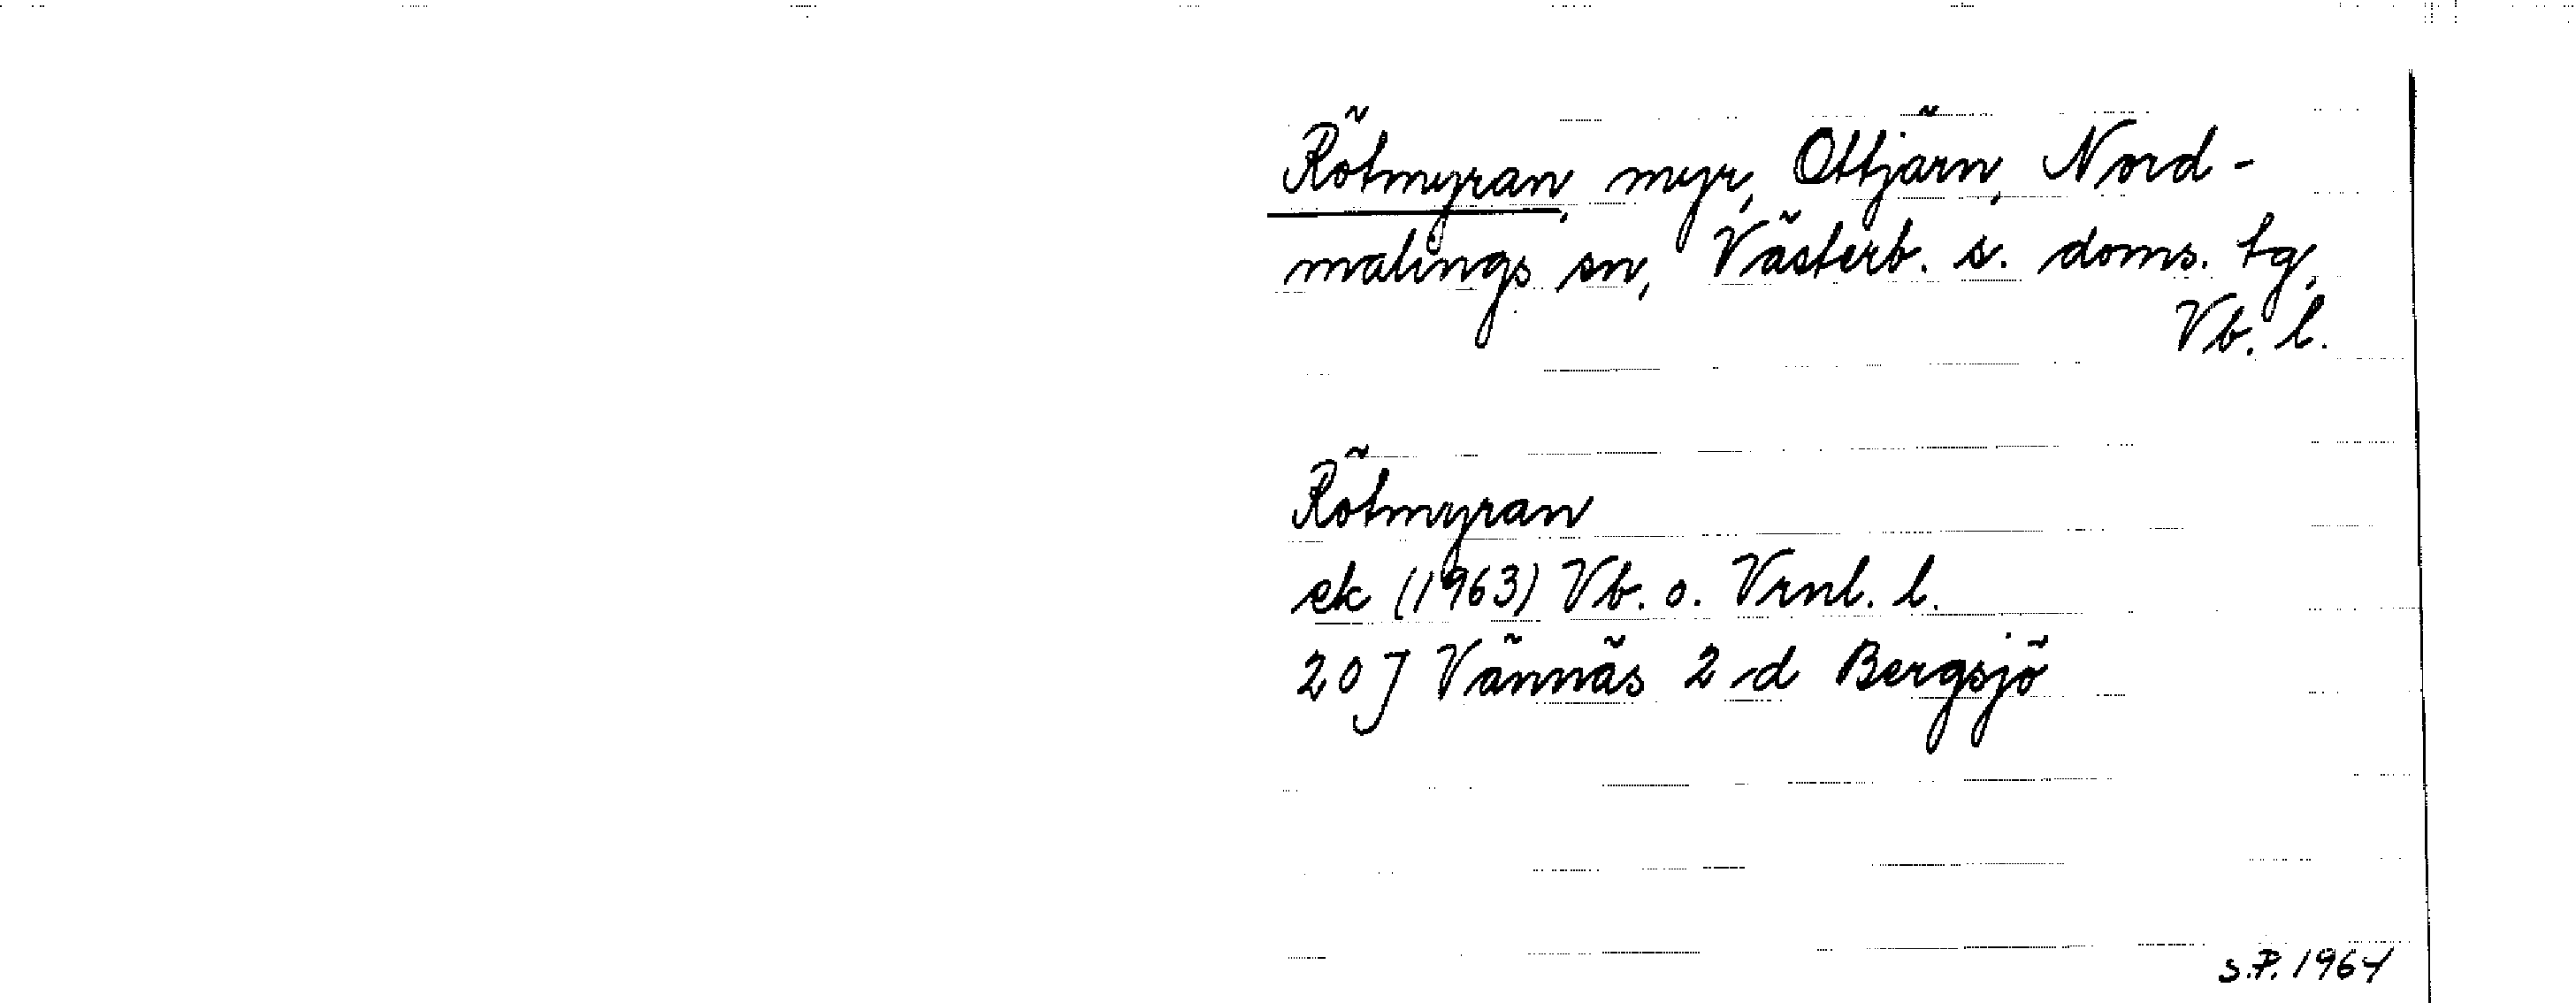 Rötmyran, myr, Ottjärn, Nord-
malings sn, Västerb. s. doms. tg,
Vb. l.
Rötmyran
ek (1963) Vb. o. Vrnl. l.
20 J Vännäs 2 d Bergsjö
S.P. 1964